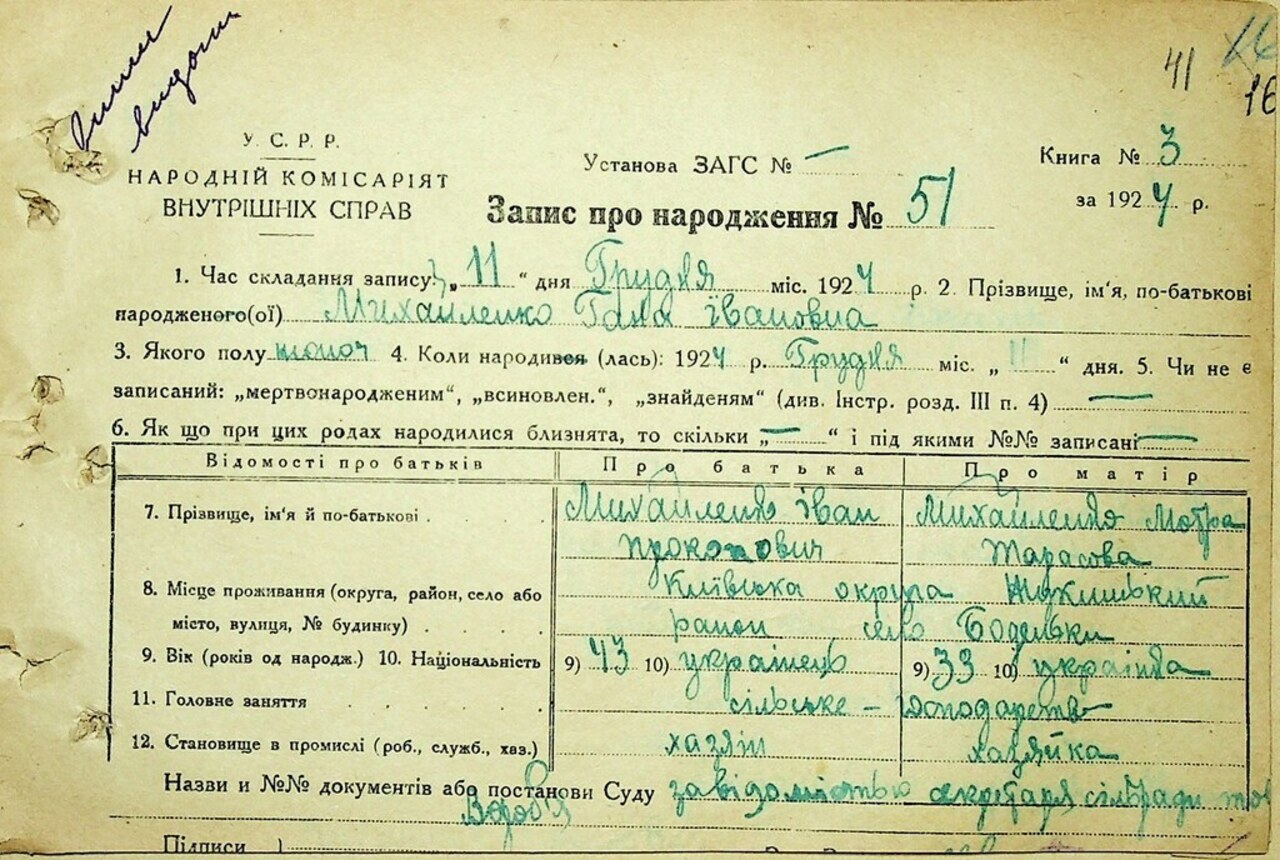 41
16
У. С. Р. Р.
НАРОДНІЙ КОМІСАРІЯТ
ВНУТРІШНІХ СПРАВ
Установа ЗАГС № —
Книга № 3
за 1924 р.
Запис про народження № 51
1. Час складання запису: „11“ дня Грудня міс. 1924 р. 2. Прізвище, ім'я, по-батькові
народженого(ої) Михайленко Гана Івановна
3. Якого полу жіноч 4. Коли народився (лась): 1924 р. Грудня міс. „11“ дня. 5. Чи не є
записаний: „мертвонародженим“, „всиновлен.“, „знайденям“ (див. Інстр. розд. III п. 4) —
6. Як що при цих родах народилися близнята, то скільки „—“ і під якими №№ записані —
Відомості про батьків Про батька Про матір
7. Прізвище, ім'я й по-батькові . Михайленко Іван Михайленко Мотра
Прокопович Тарасова
8. Місце проживання (округа, район, село або Київська округа
місто, вулиця, № будинку) . . . . район село Боденьки
9. Вік (років од народж.) 10. Національність 9) 43 10) українець 9) 33 10) українка
11. Головне заняття сільське - господарство
12. Становище в промислі (роб., служб., хаз.) хазяїн хазяйка
Назви и №№ документів або постанови Суду за відомістью секретаря сільради тов
Вороб'я
Підписи